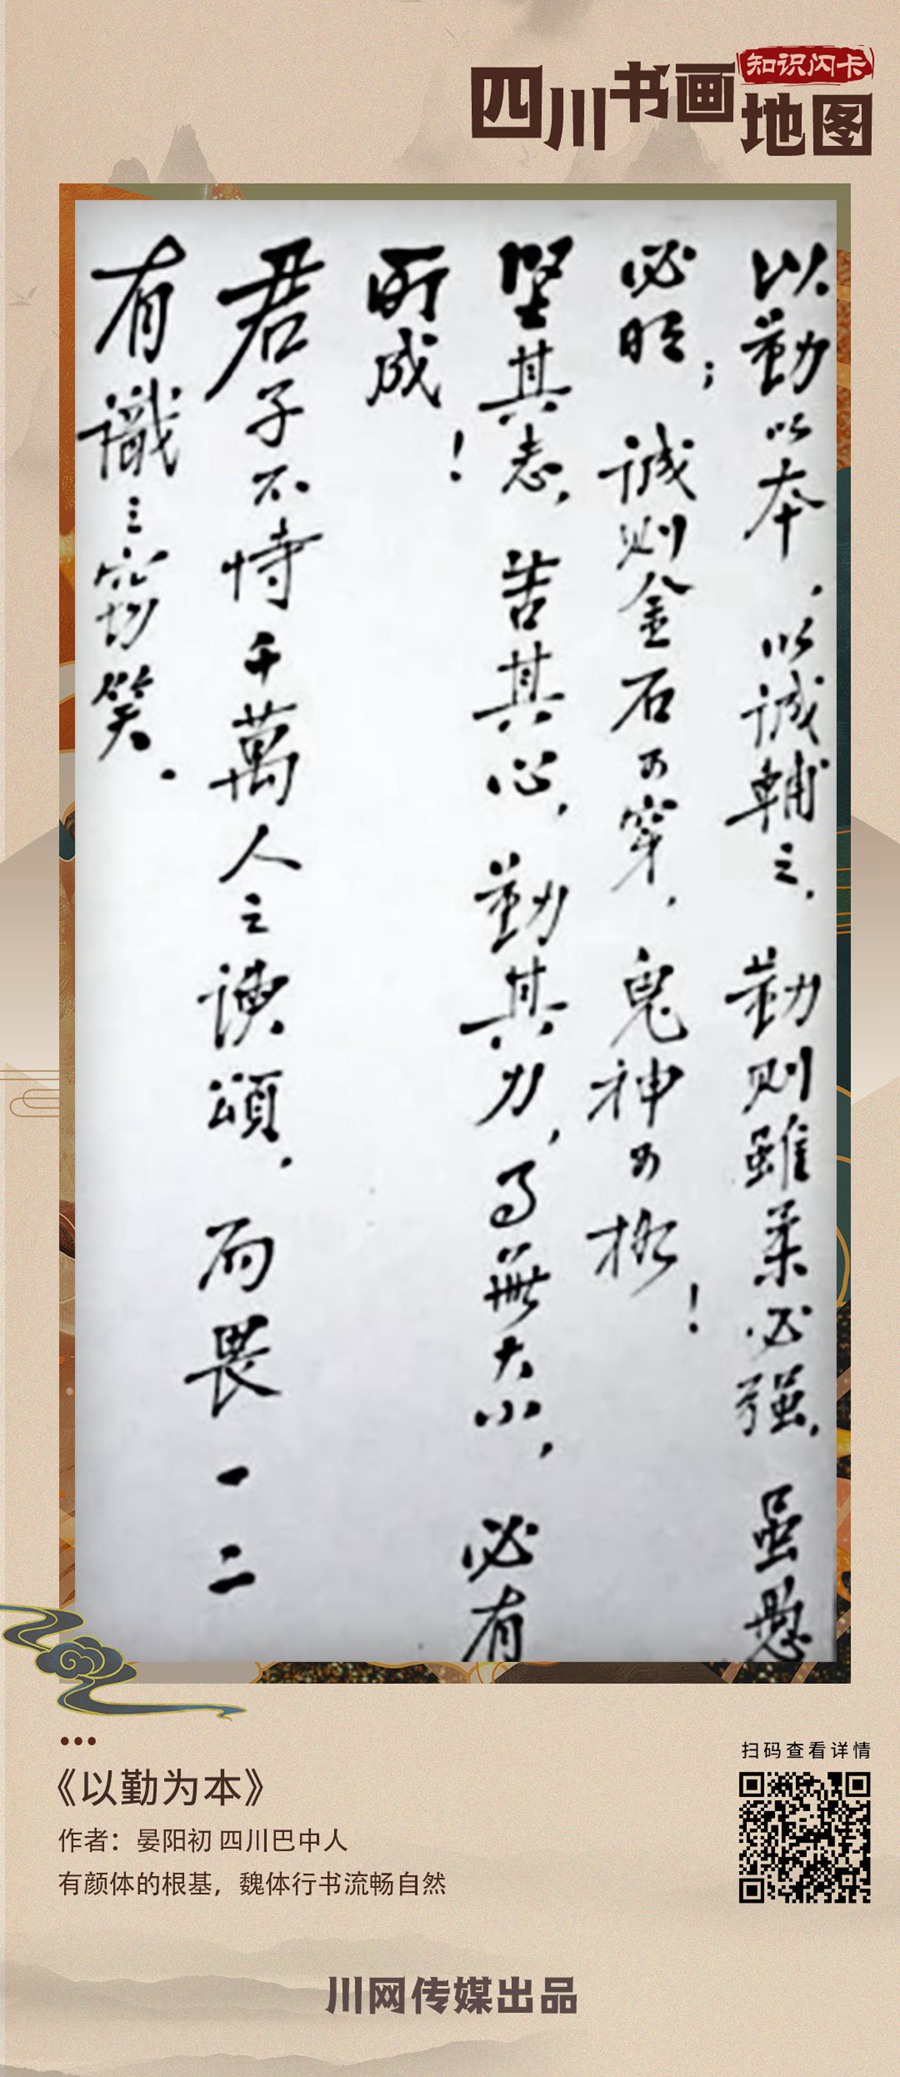 四川书画地图
知识闪卡
以勤以本，以诚輔之，勤则雖柔必强，虽愚
必明；诚则金石可穿，鬼神可格！
坚其志，苦其心，勤其力，事無大小，必有
所成！
君子不恃千萬人之讀頌，而畏一二
有識之窃笑．
《以勤为本》
作者：晏阳初 四川巴中人
有颜体的根基，魏体行书流畅自然
扫码查看详情
川网传媒出品